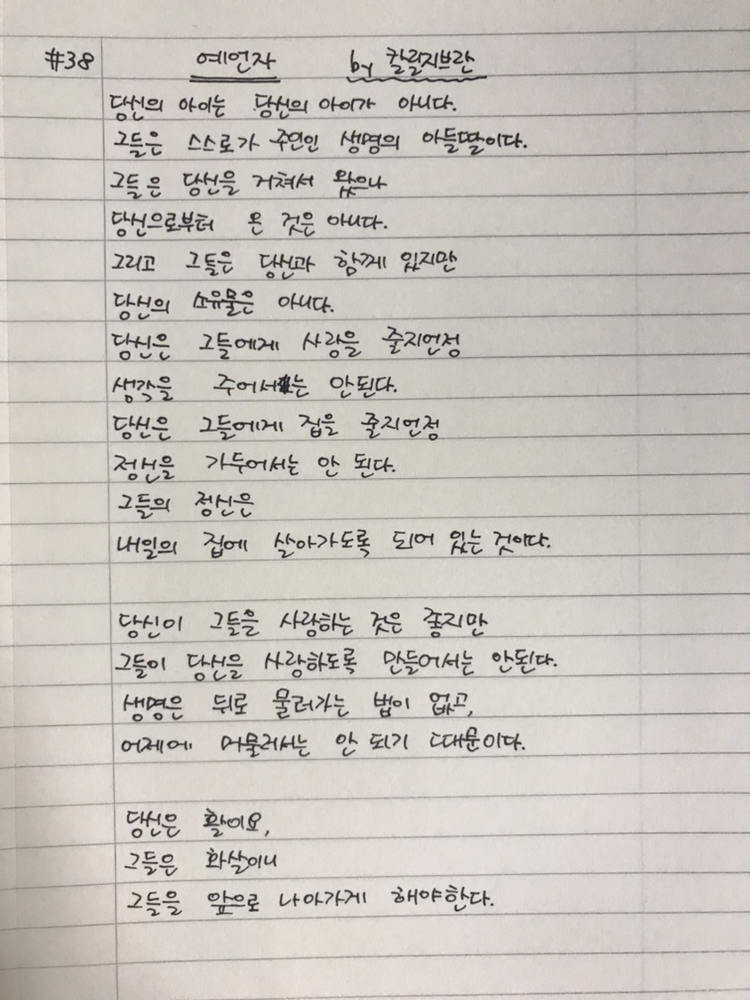 #38 예언자 by 칼릴지브란
당신의 아이는 당신의 아이가 아니다.
그들은 스스로가 주인인 생명의 아들딸이다.
그들은 당신을 거쳐서 왔으나
당신으로부터 온 것은 아니다.
그리고 그들은 당신과 함께 있지만
당신의 소유물은 아니다.
당신은 그들에게 사랑을 줄지언정
생각을 주어서는 안된다.
당신은 그들에게 집을 줄지언정
정신을 가두어서는 안 된다.
그들의 정신은
내일의 집에 살아가도록 되어 있는 것이다.
당신이 그들을 사랑하는 것은 좋지만
그들이 당신을 사랑하도록 만들어서는 안된다.
생명은 뒤로 물러가는 법이 없고,
어제에 머물러서는 안 되기 때문이다.
당신은 활이요,
그들은 화살이니
그들을 앞으로 나아가게 해야한다.